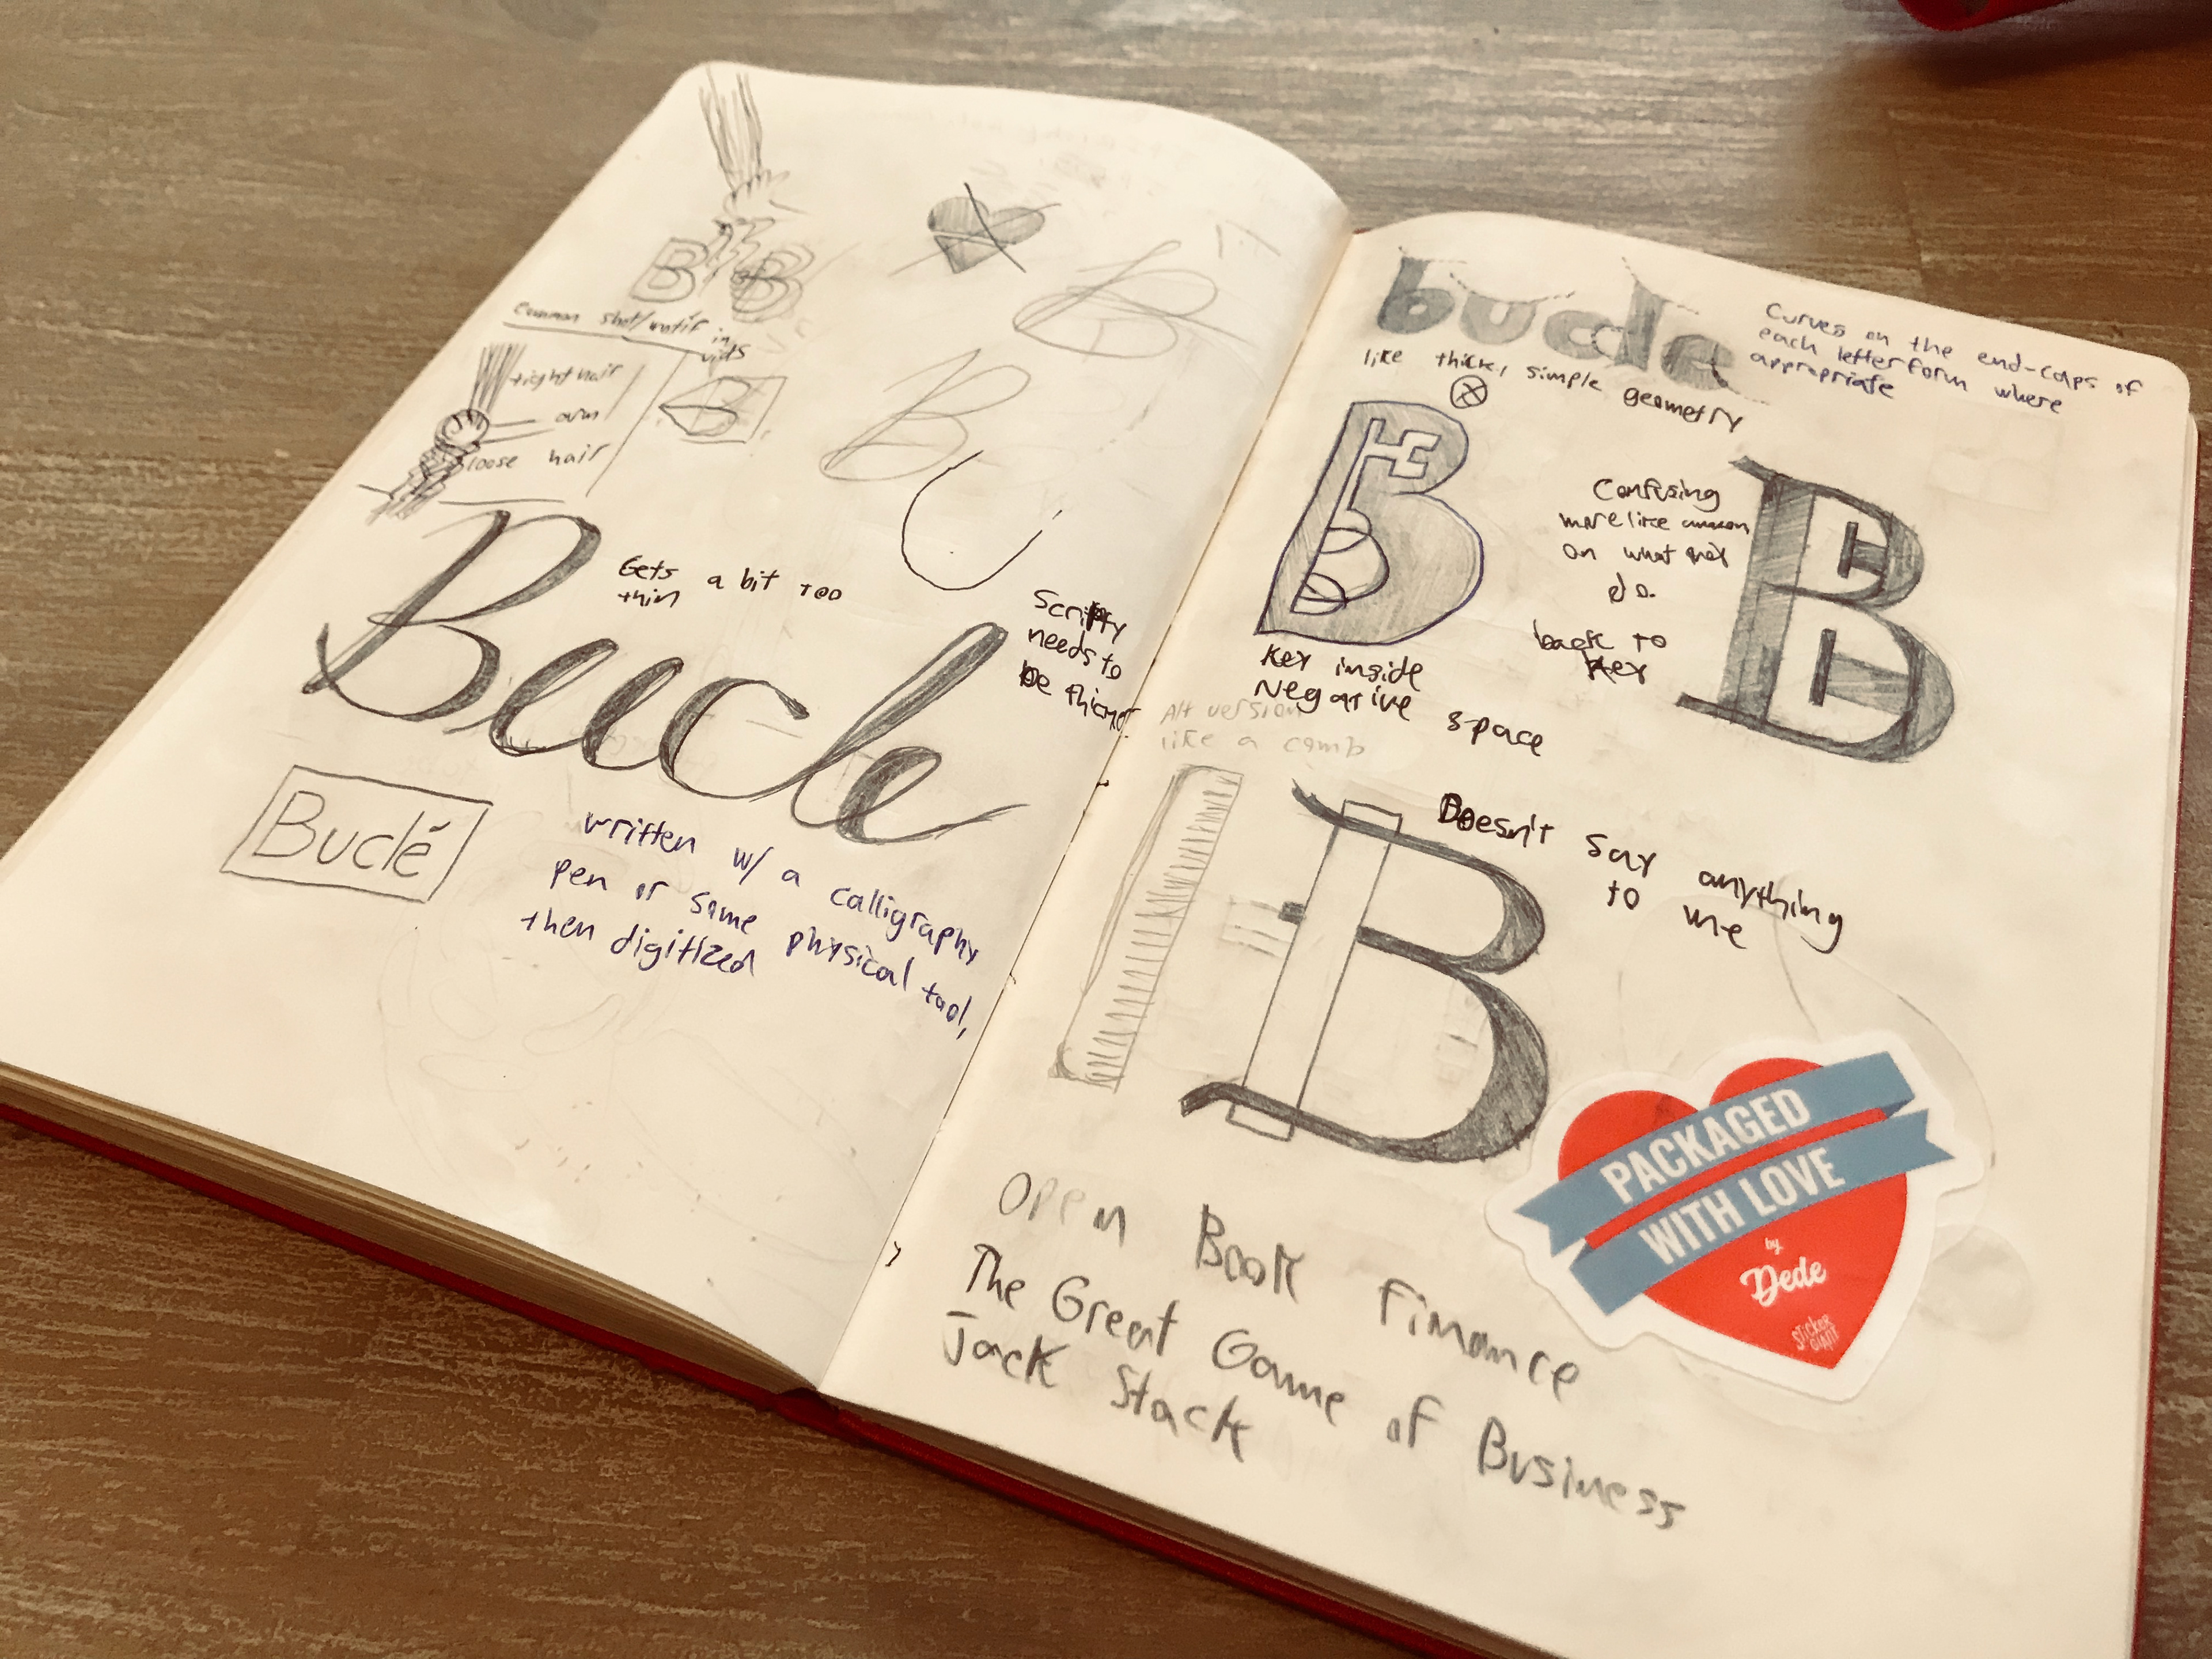 B B
Common shot/motif in
vids
tight hair
arm
loose hair
B
B
B
Bucle
Gets a bit too
thin
Scripty
needs to
be thicker
Buclé
written w/ a calligraphy
pen or some physical tool,
then digitized
bucle
Curves on the end-caps of
each letterform where
appropriate
like thick, simple geometry
B
Key inside
Negative space
Confusing
more like
on what not
do.
back to
key
B
Alt version
like a comb
B
Doesn't say anything
to me
PACKAGED
WITH LOVE
by
Dede
STICKER
GIANT
Open Book Finance
The Great Game of Business
Jack Stack